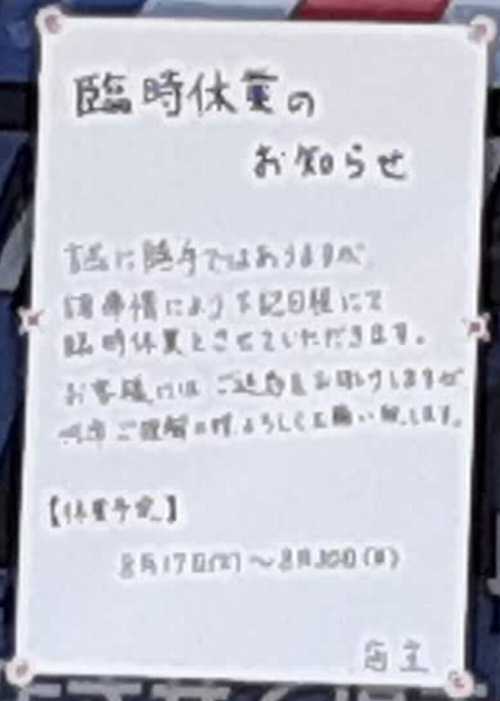 臨時休業の
お知らせ
誠に勝手ではありますが
諸事情により下記日程にて
臨時休業とさせていただきます。
お客様にはご迷惑をお掛けしますが
ご理解の程よろしくお願い致します。
【休業予定】
8月17日(火)～8月30日(月)
店主